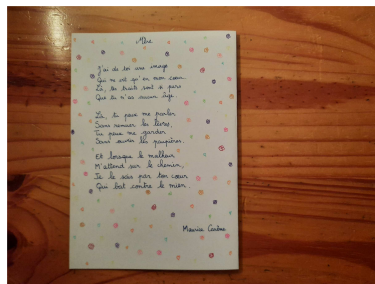 Mère
J'ai de toi une image
Qui ne vit qu'en mon cœur.
Là, tes traits sont si purs
Que tu n'as aucun âge.
Là, tu peux me parler
Sans remuer les lèvres,
Tu peux me regarder
Sans ouvrir les paupières.
Et lorsque le malheur
M'attend sur le chemin,
Je le sais par ton cœur
Qui bat contre le mien.
Maurice Carême